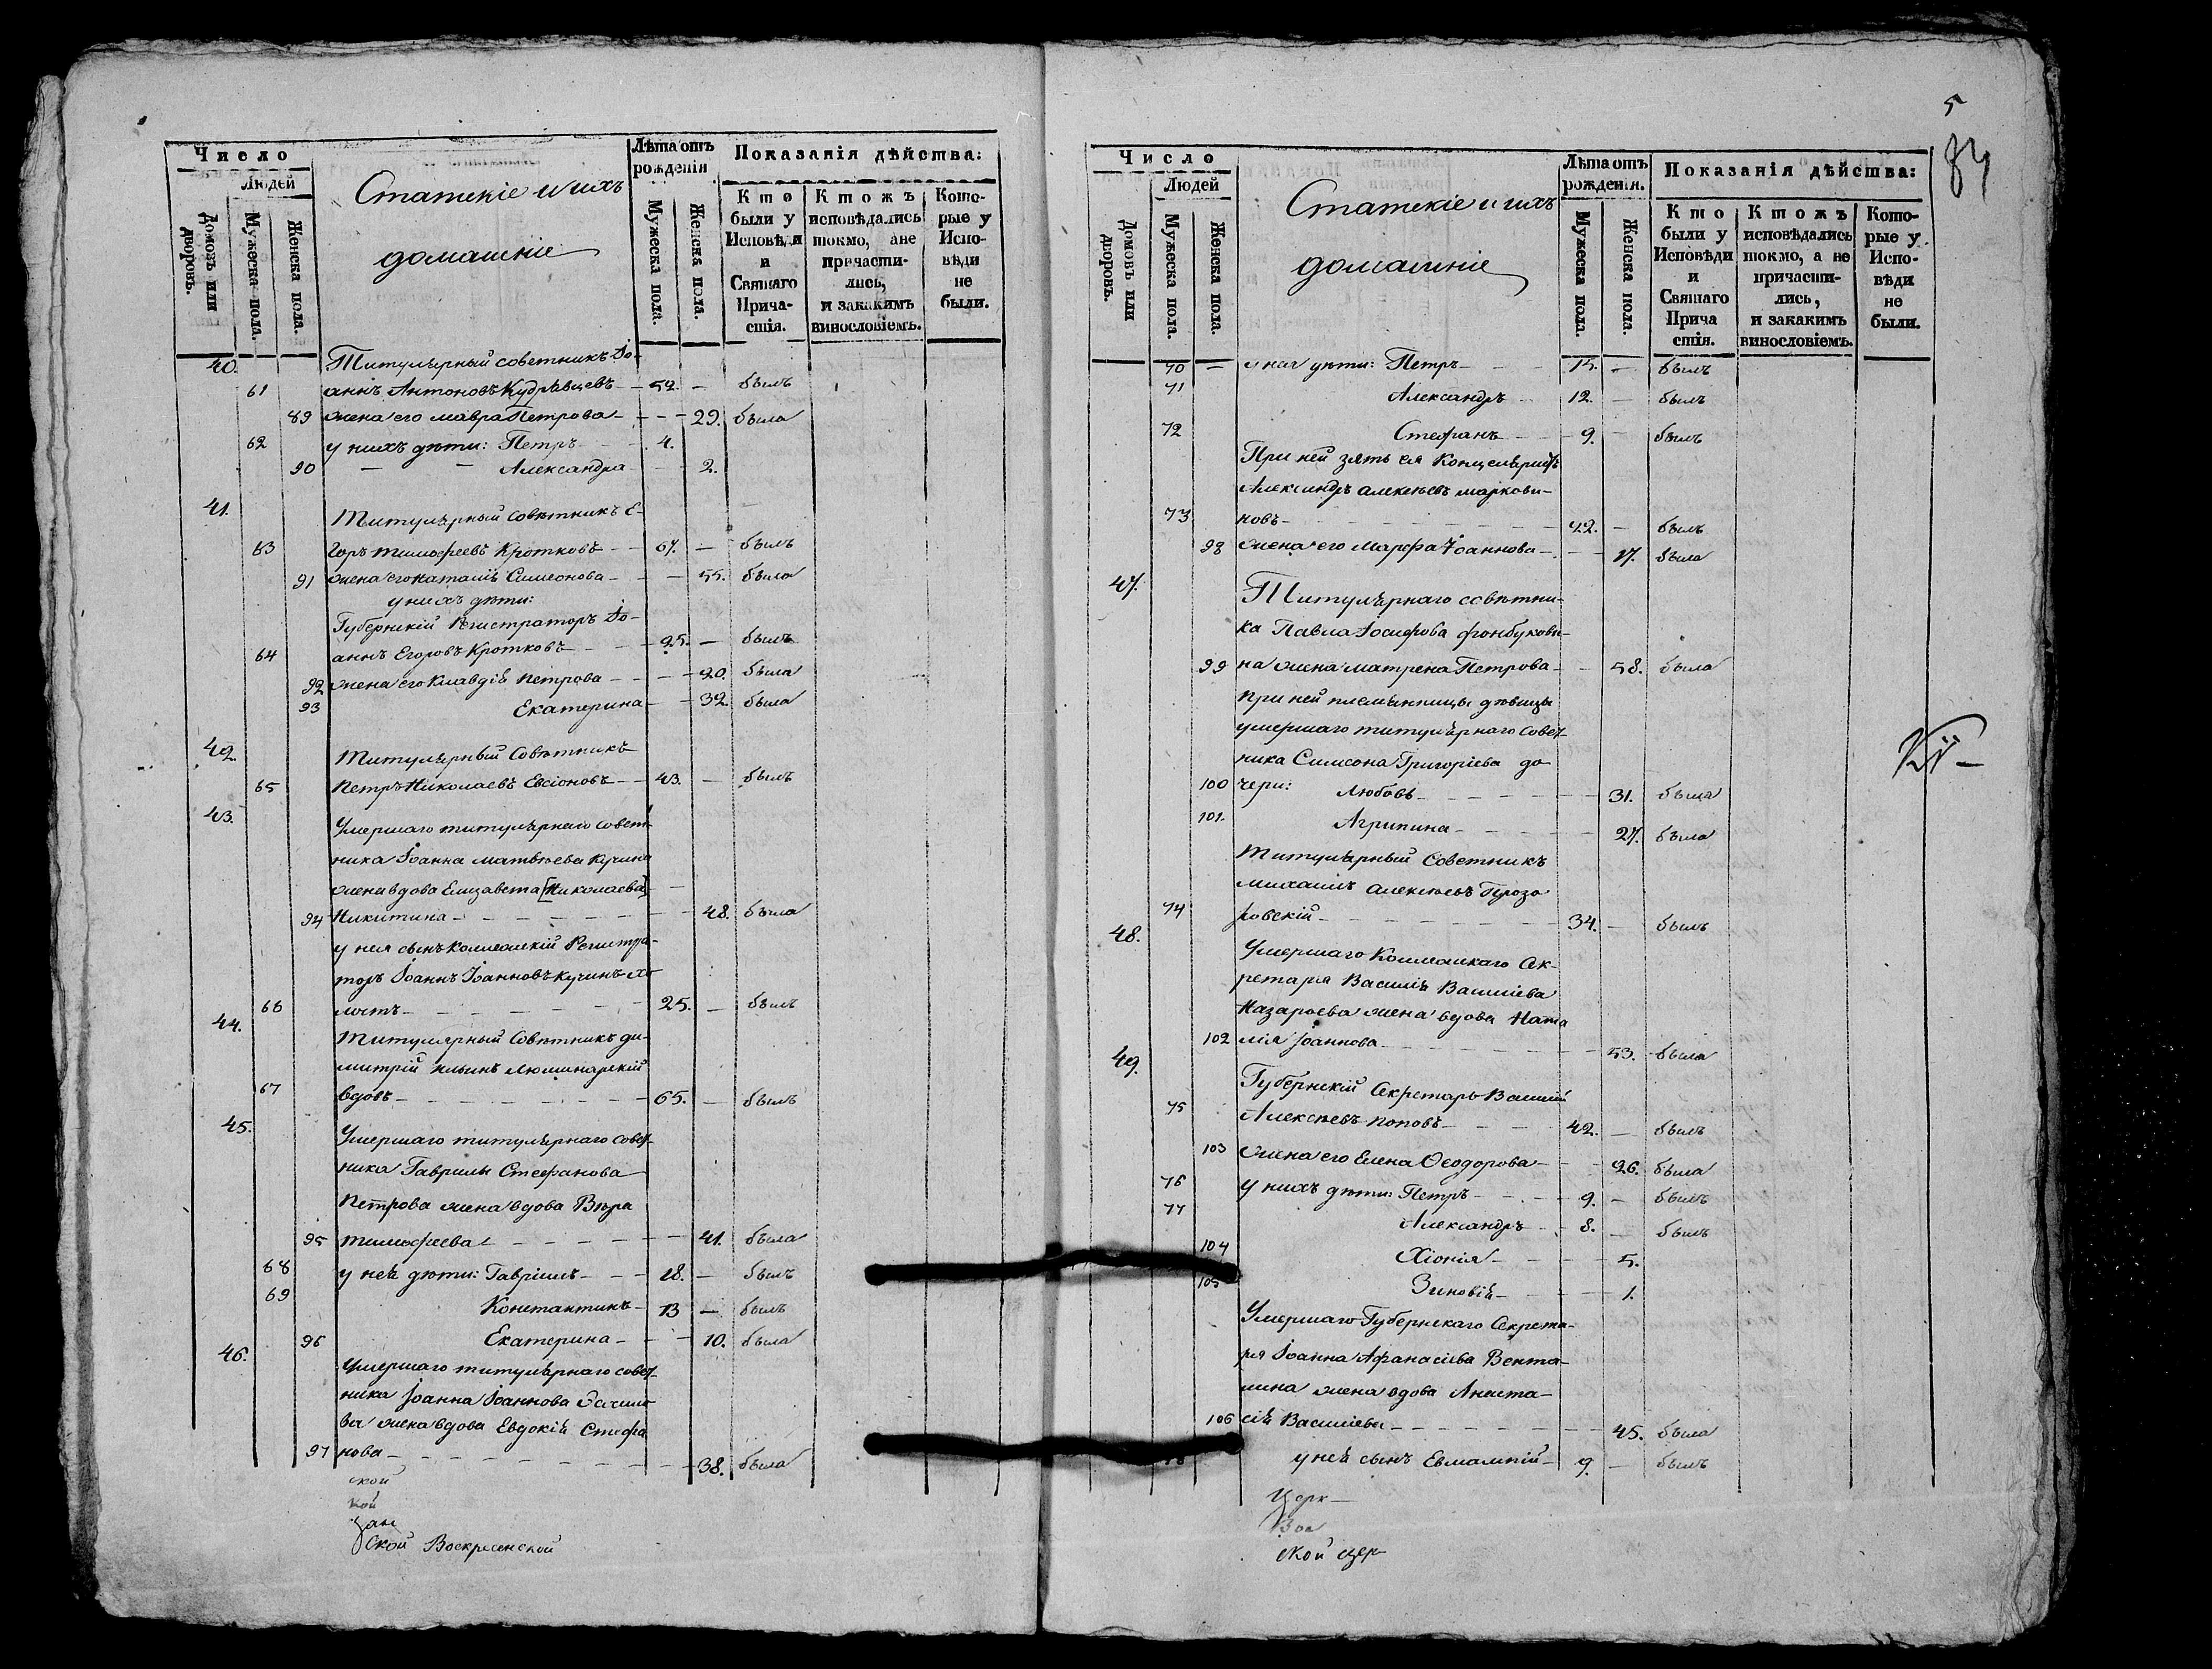 Число
Людей
Домовъ или дворовъ.
Мужеска пола.
Женска пола.
Статскіе и ихъ
домашніе
Лѣта отъ рожденія
Мужеска пола.
Женска пола.
Показанія дѣйства:
Кто были у Исповѣди и Святаго Причастія.
Ктожъ исповѣдались токмо, а не причастились, и за какимъ винословіемъ.
Которые у Исповѣди не были.
40. Титулярный советникъ Іо-
61 аннъ Антоновъ Кудрявцевъ — 52. — былъ
89 жена его Мавра Петрова — — — 29. была
62 у нихъ дѣти: Петръ — 4.
90 — — Александра — — 2.
41. Титулярный Совѣтникъ Е-
63 горъ Тимофеевъ Кротковъ — 67. — былъ
91 жена его Наталія Симеонова — — 55. была
у нихъ дѣти:
Губернскій Регистраторъ Іо-
64 аннъ Егоровъ Кротковъ — 25. — былъ
92 жена его Клавдія Петрова — — — 20. была
93 Екатерина — — 32. была
42. Титулярный Совѣтникъ
65 Петръ Николаевъ Евсіоновъ — 43. — былъ
43. Умершаго титулярнаго совет-
ника Іоанна Матвѣева Кучина
жена вдова Елизавета [Николаева]
94 Никитина — — — — 48. была
у нея сынъ Коллежскій Регистра-
торъ Іоаннъ Іоанновъ Кучинъ хо-
66 лостъ — — — — 25. — былъ
44. Титулярный Совѣтникъ Ди-
митрій Ильинъ Люминарскій
67 вдовъ — — — — 65. — былъ
45. Умершаго титулярнаго совет-
ника Гаврилы Стефанова
Петрова жена вдова Вѣра
95 Тимофеева — — — — 41. была
68 у ней дѣти: Гавріилъ — — 18. — былъ
69 Константинъ — 13 — былъ
96 Екатерина — — — 10. была
46. Умершаго титулярнаго совет-
ника Іоанна Іоаннова
ва жена вдова Евдокія Стефа
97 нова — — — — 38. была
ской
кой
ской Воскресенской
5
Число
Людей
Домовъ или дворовъ.
Мужеска пола.
Женска пола.
Статскіе и ихъ
домашніе
Лѣта отъ рожденія.
Мужеска пола.
Женска пола.
Показанія дѣйства:
Кто были у Исповѣди и Святаго Причастія.
Ктожъ исповѣдались токмо, а не причастились, и за какимъ винословіемъ.
Которые у Исповѣди не были.
70 — у нея дѣти: Петръ — — 15. — былъ
71 Александръ — 12. — былъ
72 Стефанъ — — 9. — былъ
При ней зять ея Канцеляристъ
Александръ Алексѣевъ Маркови-
73 новъ — — — — 22. — былъ
98 жена его Марфа Іоаннова — — — 17. была
47. Титулярнаго совѣтни-
ка Павла Іосифова Фонбукови-
99 на жена Матрена Петрова — — 58. была
при ней племянницы дѣвицы
умершаго титулярнаго совет-
ника Симеона Григоріева до
100 чери: Любовь — — — — 31. была
101. Агрипина — — — — 27. была
Титулярный Советникъ
Михаилъ Алексѣевъ Прозо
74 ровскій — — — — 34. — былъ
48. Умершаго Коллежскаго Сек-
ретаря Василія Васильева
Назарьева жена вдова Ната
102 лія Іоаннова — — — — 53. была
49. Губернскій Секретарь Василій
75 Алексѣевъ Поповъ — — — 42. — былъ
103 жена его Елена Ѳеодорова — — — 26. была
76 у нихъ дѣти: Петръ — — — 9. — былъ
77 Александръ — 8. — былъ
104 Хіонія — — — 5.
105 Зиновія — — — 1.
Умершаго Губернскаго Секрета-
ря Іоанна Афанасіева Вента-
лина жена вдова Анаста-
106 сія Василіева — — — — 45. была
78 у ней сынъ Евлампій — 9. — былъ
Церк
Вос
ской цер